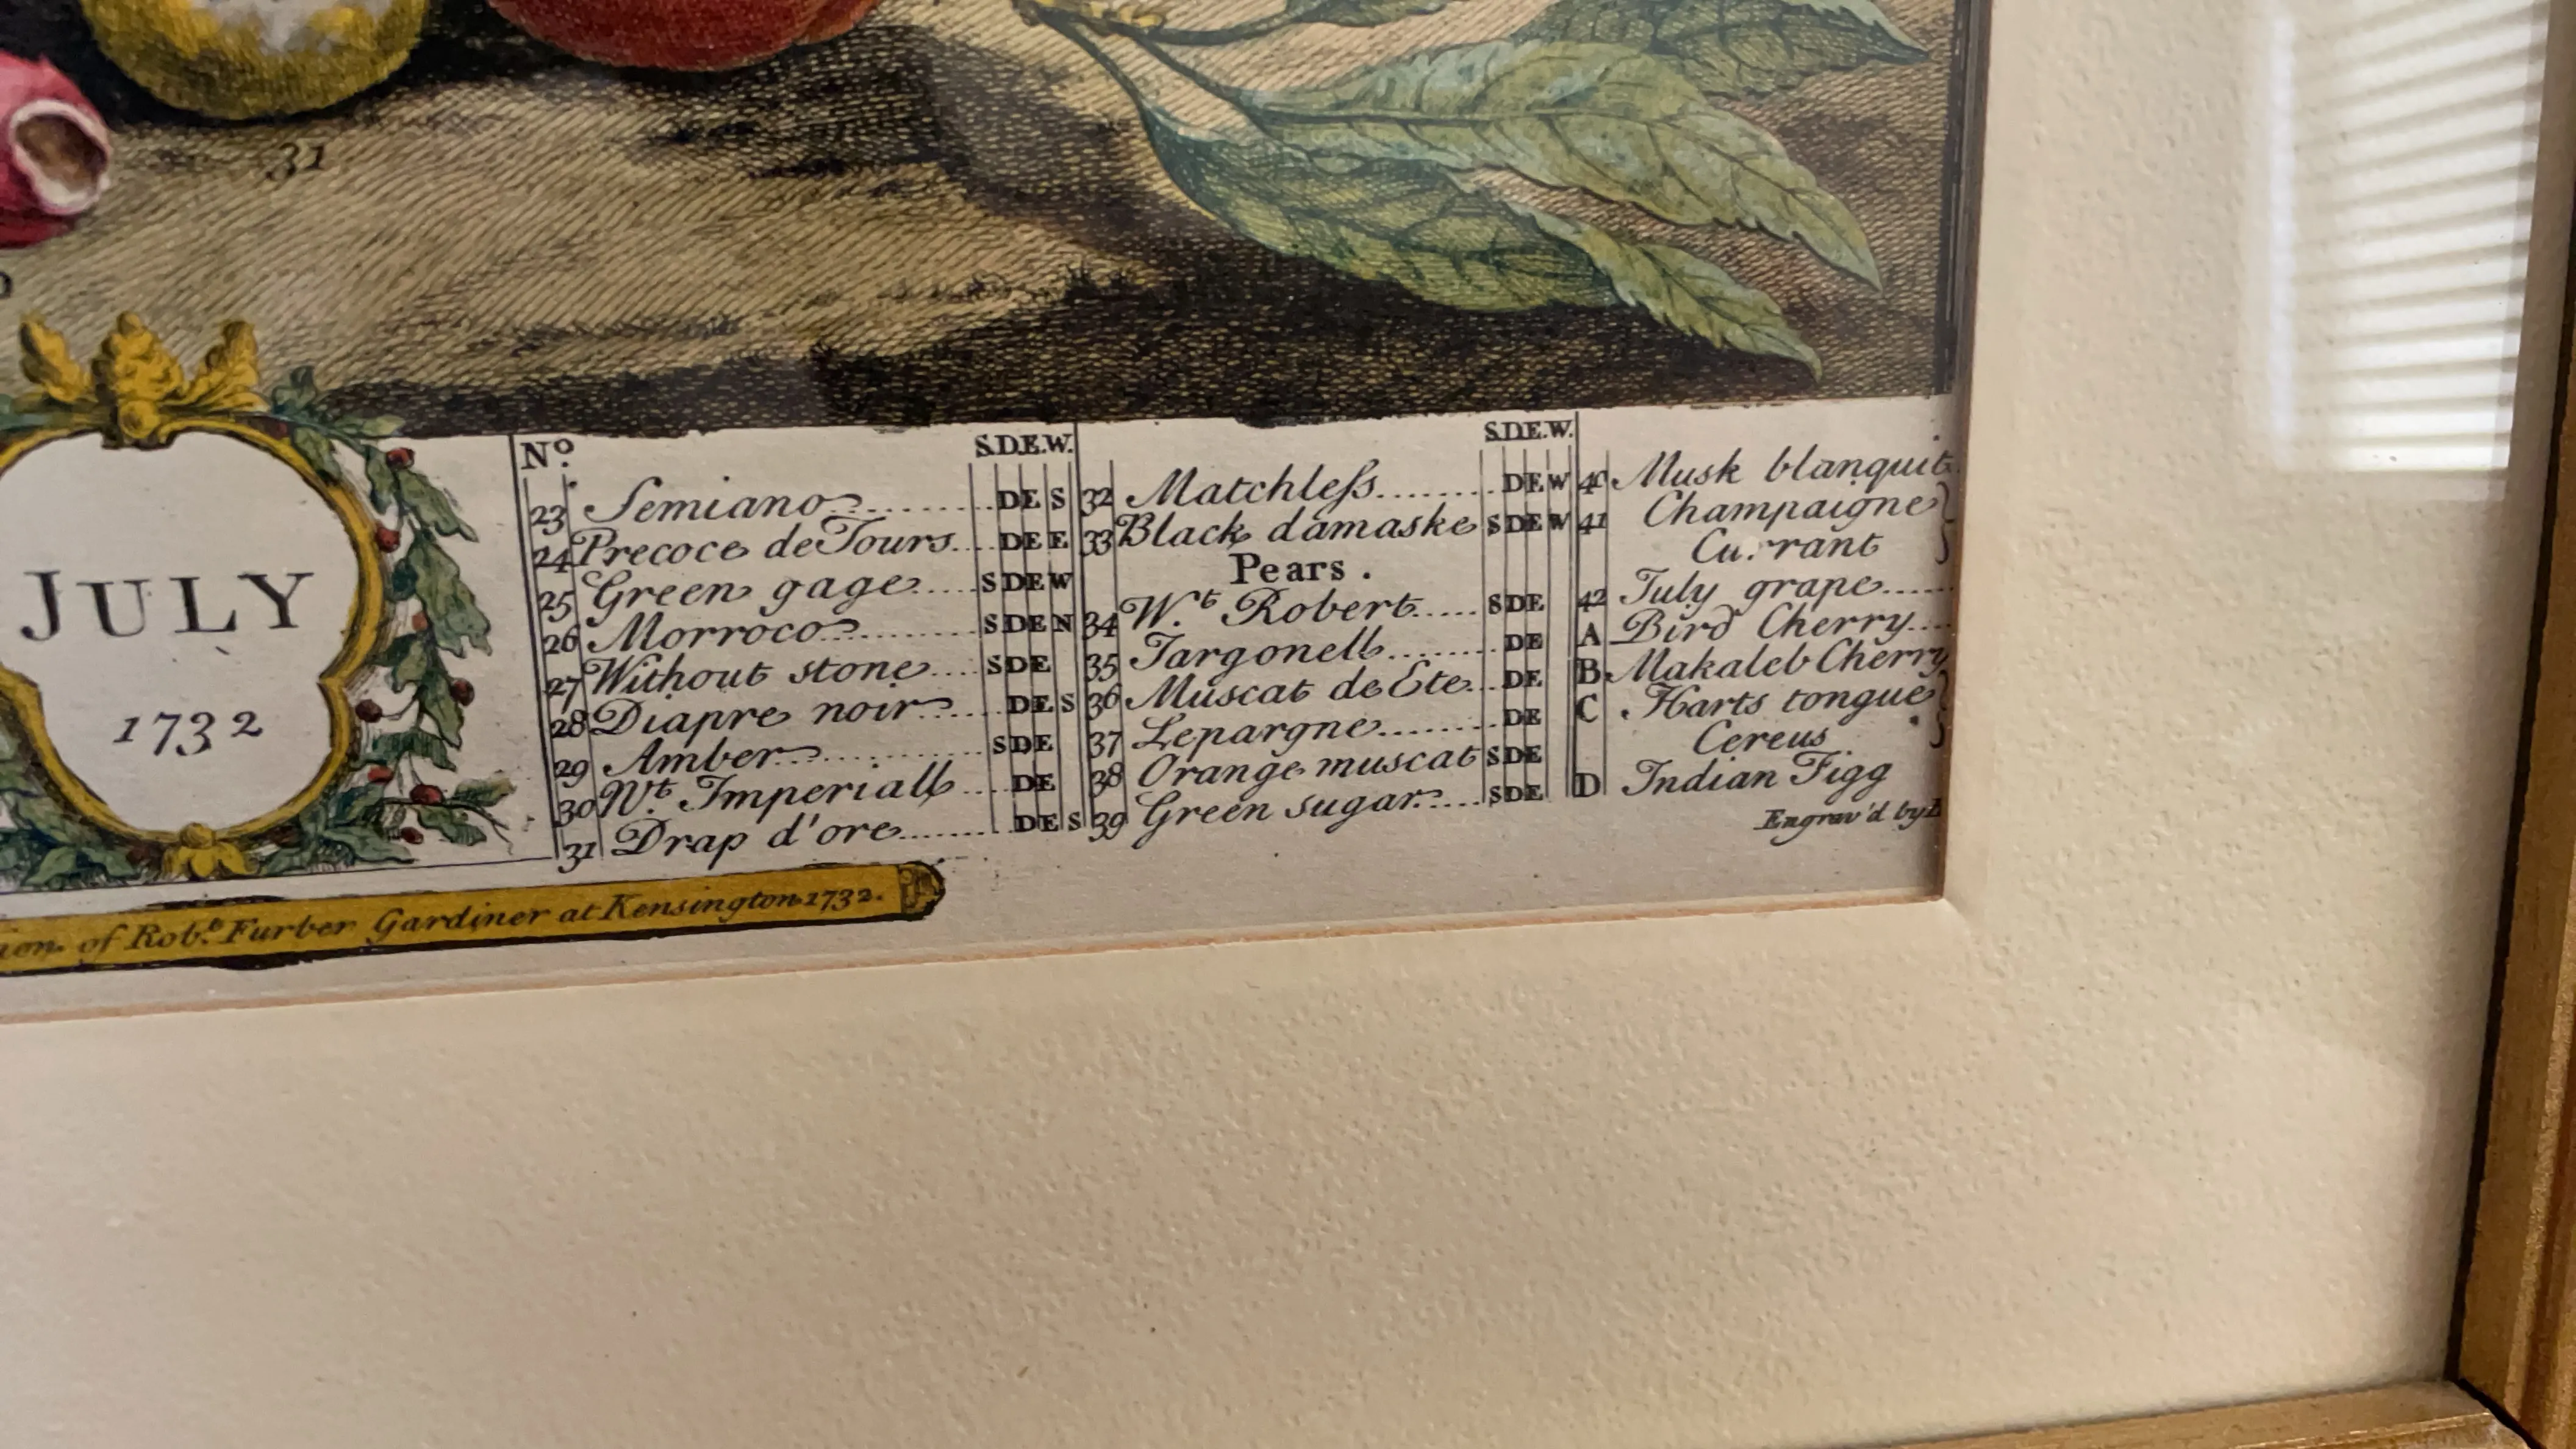 31
JULY
1732
No. S.D.E.W.
23 Semiano DE S
24 Precoce de Tours DE E
25 Green gage S DE W
26 Morroco S DE N
27 Without stone S DE
28 Diapre noir DE S
29 Amber S DE
30 Wt. Imperiall DE
31 Drap d'ore DE S
S.D.E.W.
32 Matchleſs DE W
33 Black damaske S DE W
Pears.
34 Wt. Robert S DE
35 Jargonell DE
36 Muscat de Ete DE
37 Lepargne DE
38 Orange muscat S DE
39 Green sugar S DE
40 Musk blanquit
41 Champaigne
Currant
42 July grape
A Bird Cherry
B. Makaleb Cherry
C Harts tongue
Cereus
D Indian Figg
Engrav'd by
of Robt. Furber Gardiner at Kensington 1732.